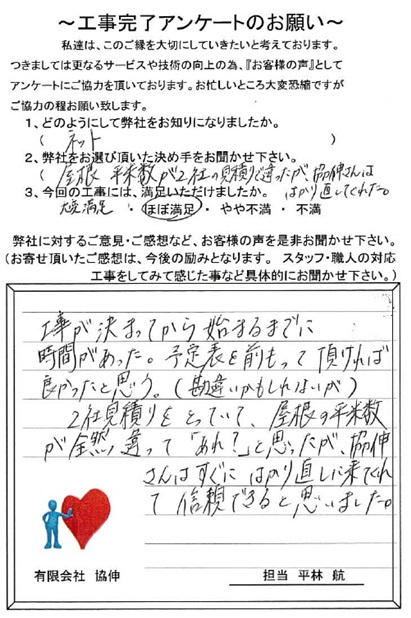 ～工事完了アンケートのお願い～
私達は、このご縁を大切にしていきたいと考えております。
つきましては更なるサービスや技術の向上の為、『お客様の声』として
アンケートにご協力を頂いております。お忙しいところ大変恐縮ですが
ご協力の程お願い致します。
1、どのようにして弊社をお知りになりましたか。
( ネット )
2、弊社をお選び頂いた決め手をお聞かせ下さい。
(屋根 平米数が2社の見積りで違ったが、協伸さんは
3、今回の工事には、満足いただけましたか。 はかり直してくれた。)
大変満足 ・ ほぼ満足 ・ やや不満 ・ 不満
弊社に対するご意見・ご感想など、お客様の声を是非お聞かせ下さい。
(お寄せ頂いたご感想は、今後の励みとなります。 スタッフ・職人の対応
工事をしてみて感じた事など具体的にお聞かせ下さい。)
工事が決まってから始まるまでに
時間があった。予定表を前もって頂ければ
良かったと思う。(勘違いかもしれないが)
2社見積りをとっていて、屋根の平米数
が全然違って「あれ?」と思ったが、協伸
さんはすぐにはかり直しに来てくれ
て信頼できると思いました。
有限会社 協伸
担当 平林 航